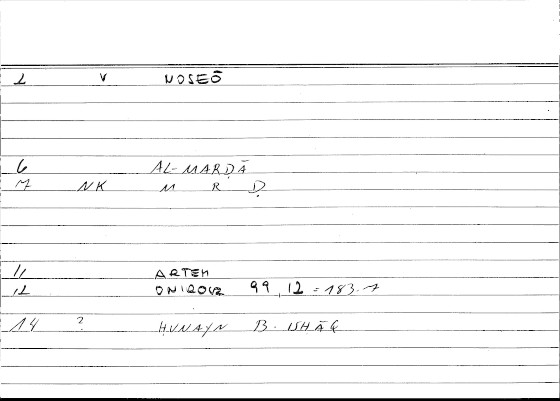 1 V NOSEŌ
6 AL-MARḌĀ
7 NK M R Ḍ
11 ARTEM
12 ONIROCR 99, 12 = 183.7
14 ? HUNAYN B. ISHĀQ